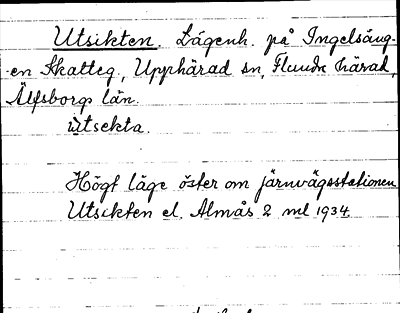 Utsikten. Lägenh. på Ingelsäng-
en Skatteg, Upphärad sn, Flundre härad,
Älfsborgs län.
ùtsekta.
Högt läge öster om järnvägsstationen
Utsikten el. Almås 2 ml 1934